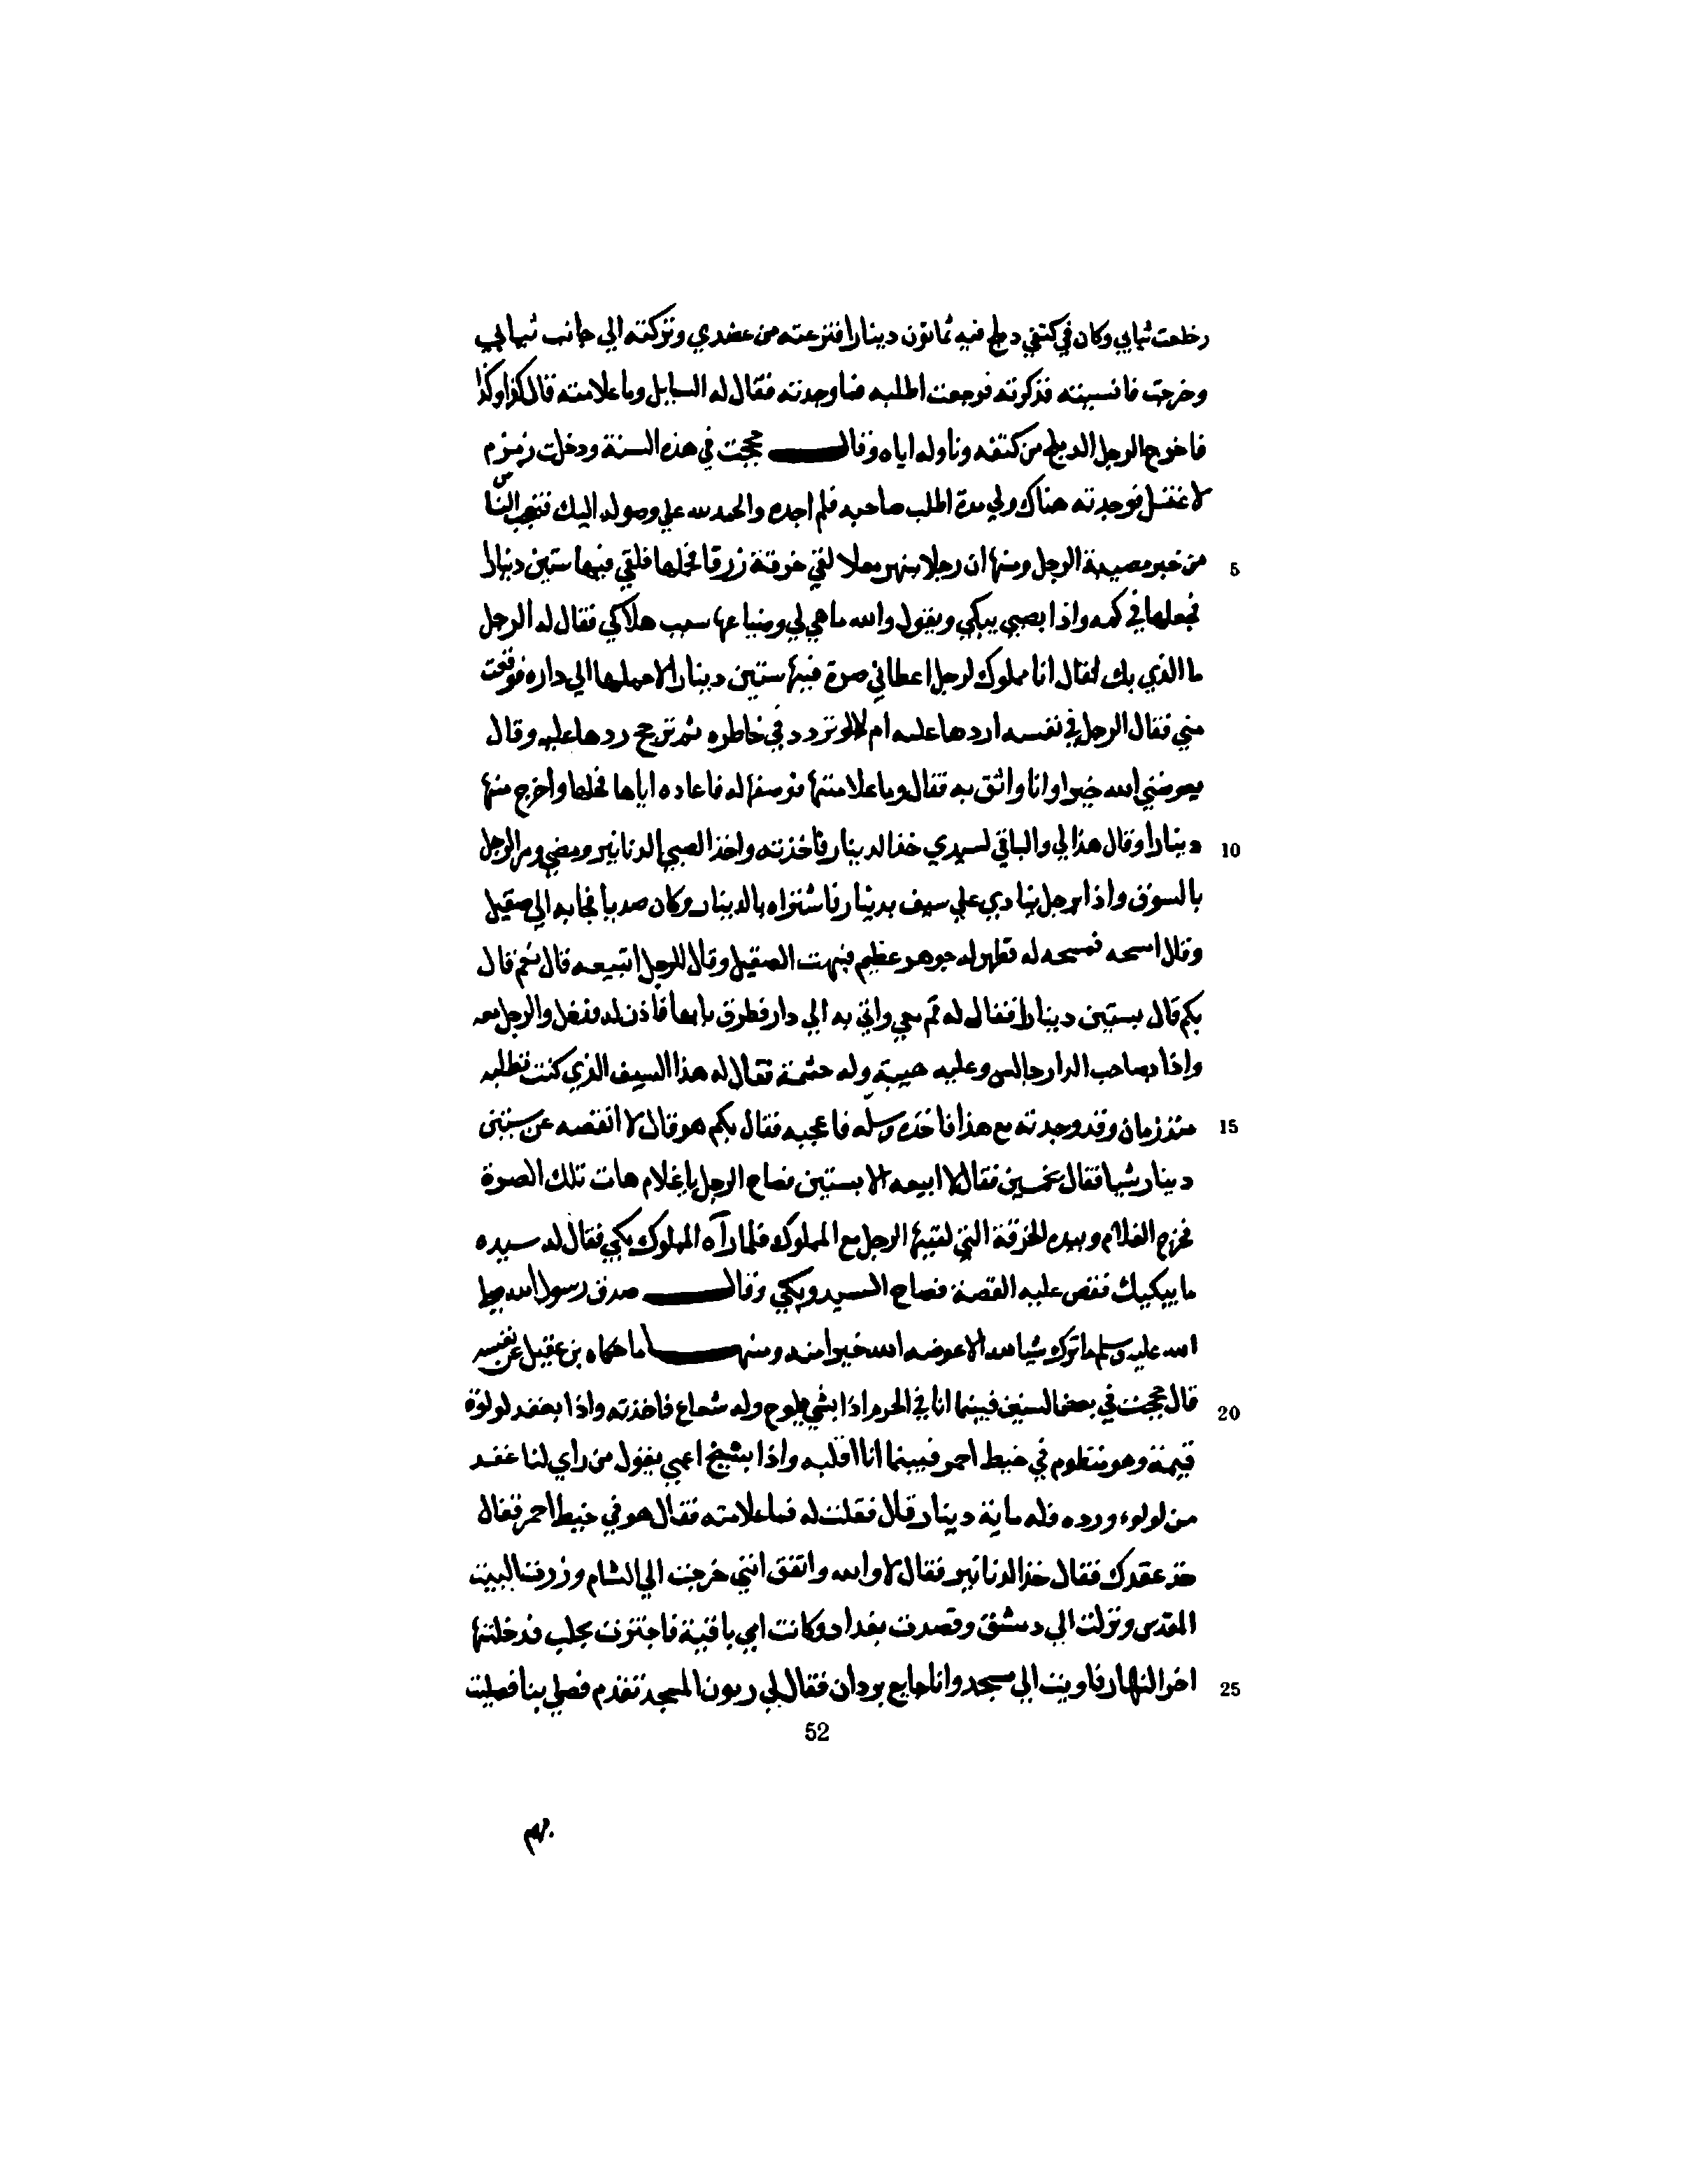 وخلعت ثيابي وكان في كتفي دملج فيه ثمانون دينارا فنزعته من عضدي وتركته الي جانب ثيابي
وخرجت فانسيته فذكرته فرجعت اطلبه فما وجدته فقال له السايل وما علامته قال كذا وكذا
فاخرج الرجل الدملج من كتفه وناوله اياه وقال حججت في هذه السنة ودخلت زمزم
لاغتسل فوجدته هناك ولي مدة اطلب صاحبه فلم اجده والحمد لله علي وصوله اليك فتعجب الناس
5 من خبر مصيبة الرجل ومنها ان رجلا بنهر معلا لقي خرقة زرقا فحلها فلقي فيها ستين دينارا
فجعلها في كمه واذا بصبي يبكي ويقول والله ما هي لي وضياعها سبب هلاكي فقال له الرجل
ما الذي بك فقال انا مملوك لرجل اعطاني صرة فيها ستين دينارا لاحملها الي داره فوقعت
مني فقال الرجل في نفسه اردها عليه ام لا وتردد في خاطره ثم ترجح ردها عليه وقال
يعوضني الله خيرا وانا واثق به فقال وما علامتها فوصفها له فاعاده اياها فحلها واخرج منها
10 دينارا وقال هذا لي والباقي لسيدي خذ الدينار فاخذته واخذ الصبي الدنانير ومضي ومر الرجل
بالسوق واذا برجل ينادي علي سيف بدينار فاشتراه بالدينار وكان صديا فجا به الي صقيل
وقال امسحه فمسحه له فظهر له جوهر عظيم فبهت الصقيل وقال للرجل اتبيعه قال نعم قال
بكم قال بستين دينارا فقال له قم معي واتي به الي دار فطرق بابها فاذن له فدخل والرجل معه
واذا بصاحب الدار جالس وعليه هيبة وله حشمة فقال له هذا السيف الذي كنت تطلبه
15 منذ زمان وقد وجدته مع هذا فاخذه وسله فاعجبه فقال بكم هو قال لا انقصه عن ستين
دينار شيا فقال بخمسين فقال لا ابيعه الا بستين فصاح الرجل يا غلام هات تلك الصرة
فخرج الغلام وبيده الخرقة التي لقيها الرجل مع المملوك فلما رآه المملوك بكي فقال له سيده
ما يبكيك فقص عليه القصة فصاح السيد وبكي وقال صدق رسول الله صلي
الله عليه وسلم ما ترك شيا لله الا عوضه الله خيرا منه ومنها ما حكاه بن عقيل عن نفسه
20 قال حججت في بعض السنين فبينما انا في الحرم اذا بشي يلوح وله شعاع فاخذته واذا بعقد لولوة
قيمة وهو منظوم في خيط احمر فبينما انا اقلبه واذا بشيخ اعمي يقول من راي لنا عقد
من لولوء ورده فله ماية دينار قال فقلت له فما علامته فقال هو في خيط احمر فقال
خذ عقدك فقال خذ الدنانير فقال لا والله واتفق انني خرجت الي الشام وزرت البيت
المقدس ونزلت الي دمشق وقصدت بغداد وكانت امي باقية فاجتزت بحلب فدخلتها
25 اخر النهار فاويت الي مسجد وانا جايع بردان فقال لي المسجد تقدم فصلي بنا فصليت
52
بهم